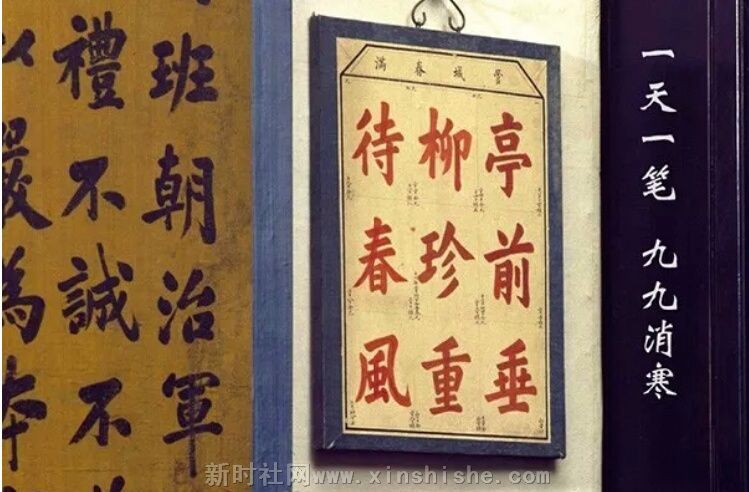 一天一笔 九九消寒
管城春滿
亭前垂
柳珍重
待春風
班朝治軍
禮不誠不
為本
新时社网www.xinshishe.com